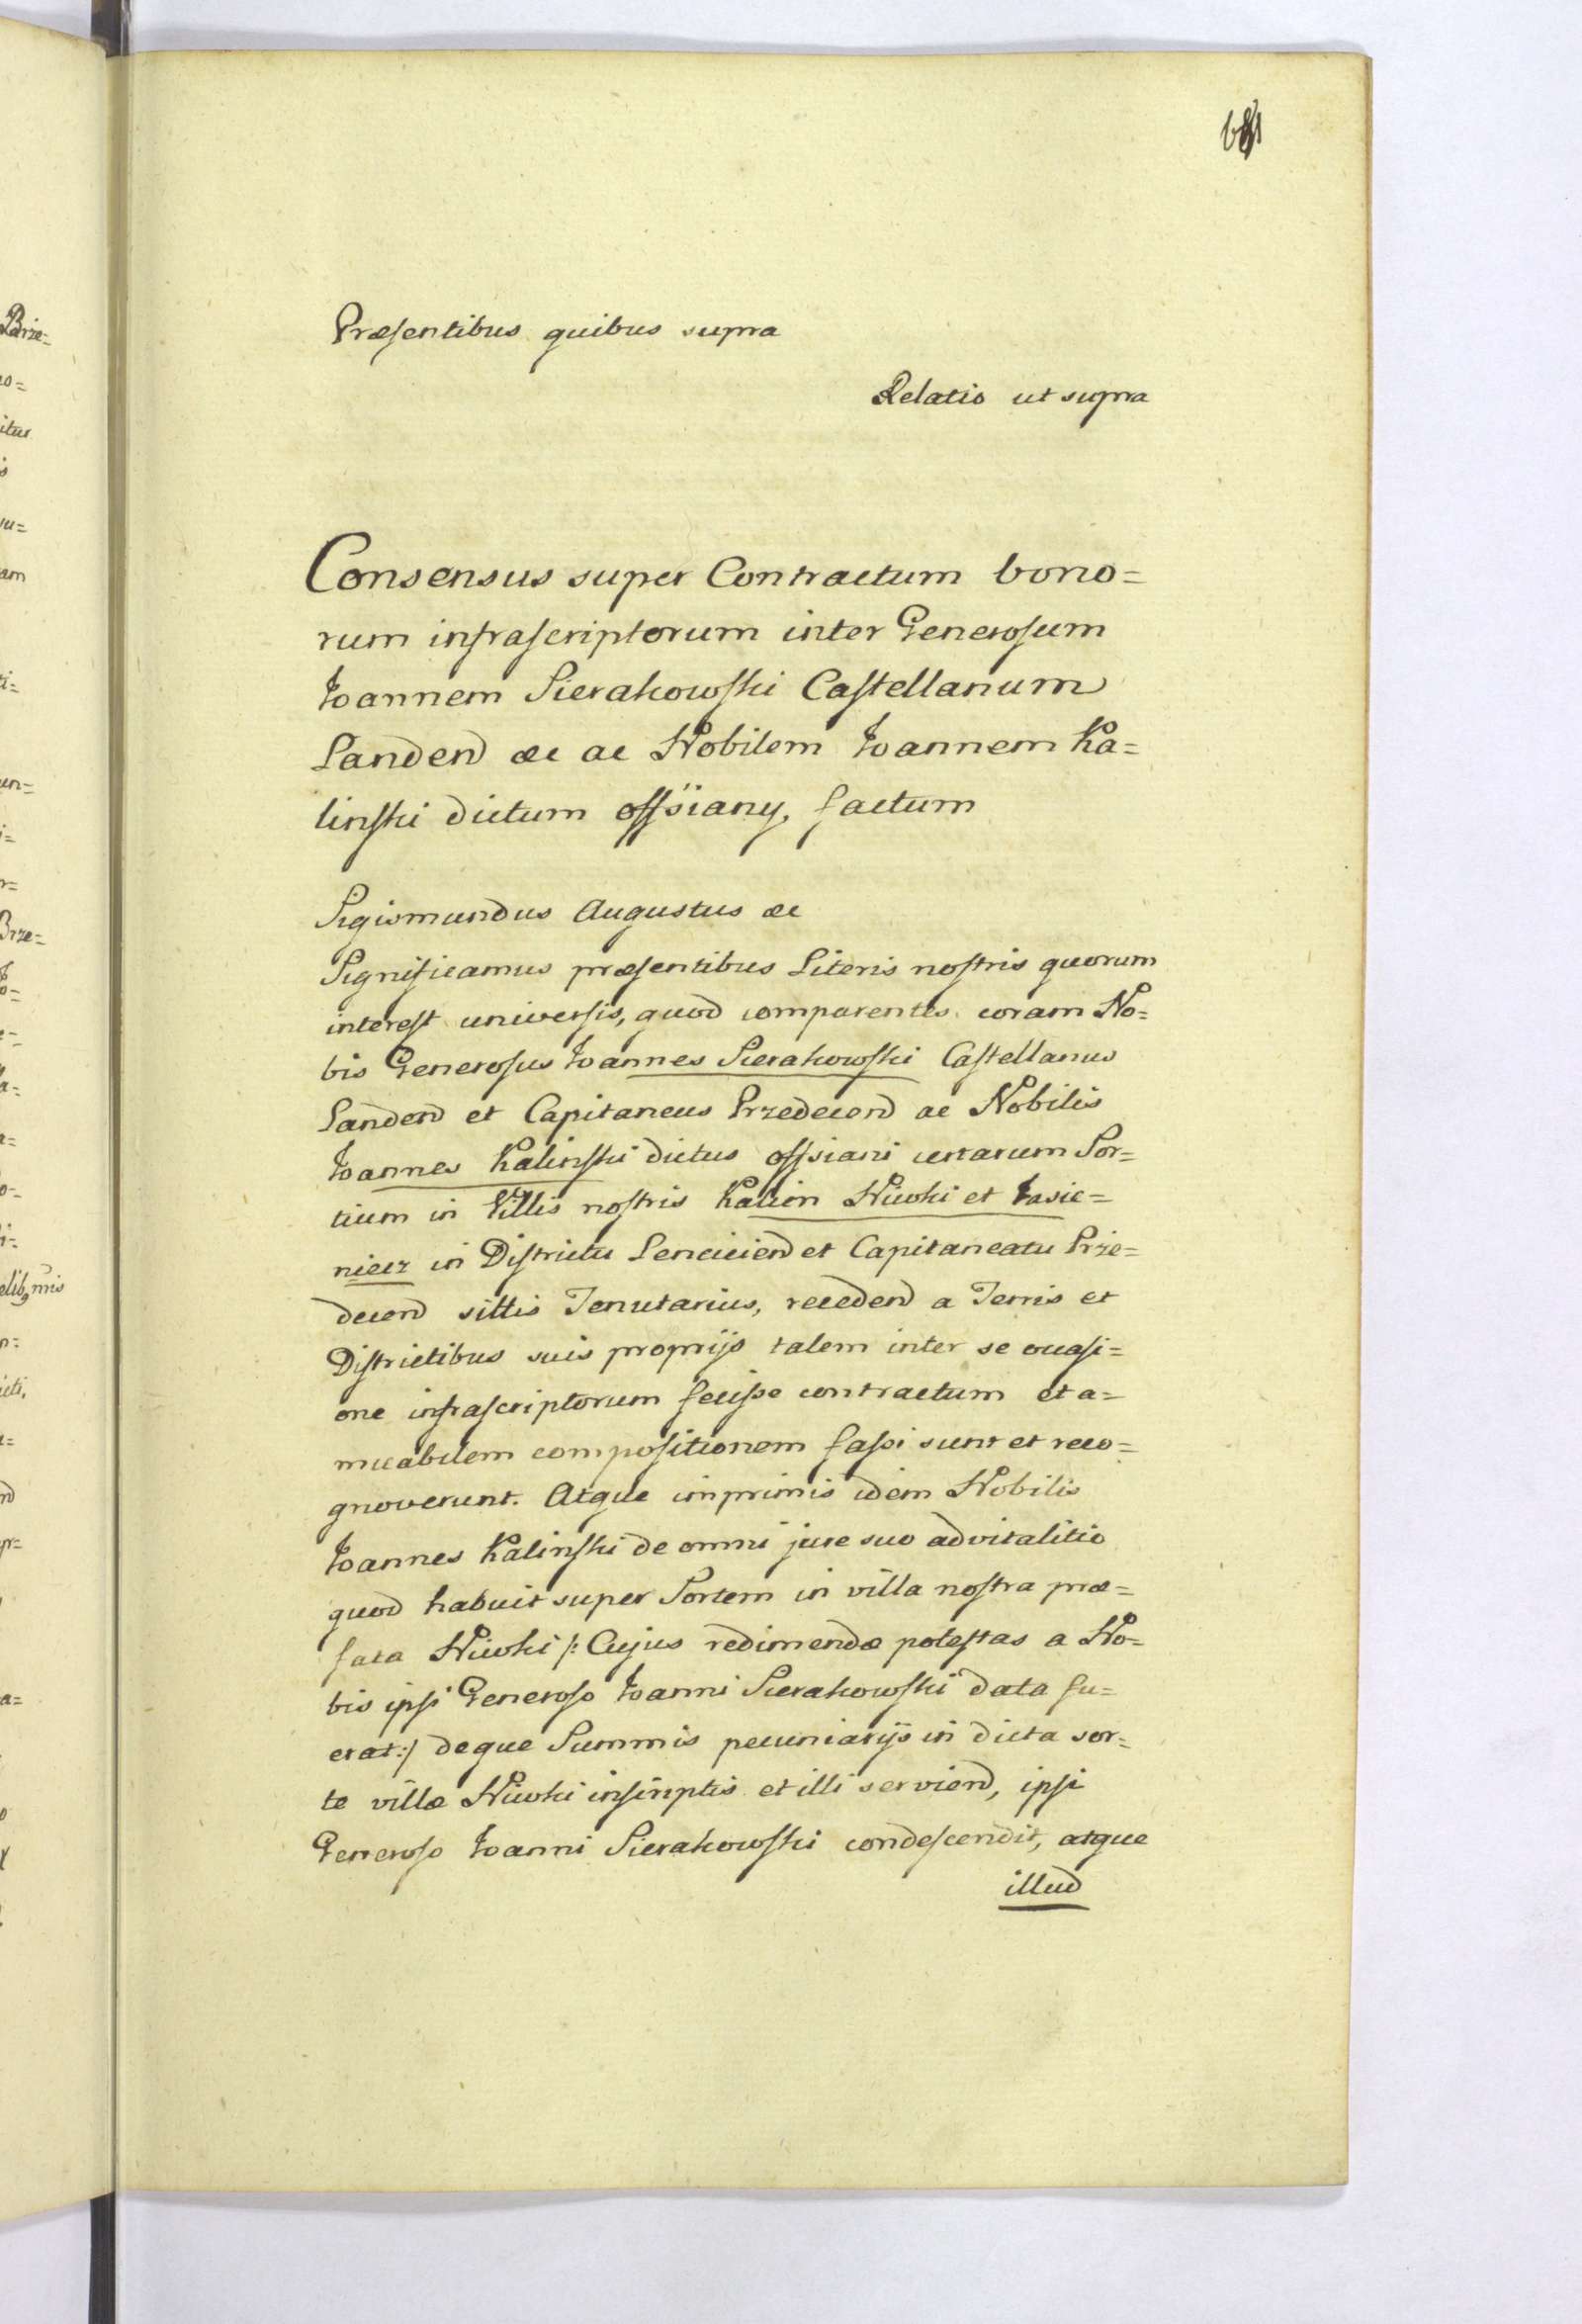 Præsentibus quibus supra
Relatio ut supra
Consensus super Contractum bono=
rum infrascriptorum inter Generosum
Joannem Sierakowski Castellanum
Landen &c ac Nobilem Joannem Ka=
linski dictum Ossiany, factum
Sigismundus Augustus &c
Significamus præsentibus Literis nostris quorum
interest universis, quod comparentes coram No=
bis Generosus Joannes Sierakowski Castellanus
Landen et Capitaneus Przedecen ac Nobilis
Joannes Kalinski dictus Ossiani certarum Sor=
tium in Villis nostris Kalien Niwki et Jasie=
niecz in Districtu Lencicien et Capitaneatu Prze=
decen sittis Tenutarius, receden a Terris et
Districtibus suis proprijs talem inter se occasi=
one infrascriptorum fecisse contractum et a=
micabilem compositionem fassi sunt et reco=
gnoverunt. Atque imprimis idem Nobilis
Joannes Kalinski de omni jure suo advitalitio
quod habuit super Sortem in villa nostra præ=
fata Niwki /: Cujus redimendæ potestas a No=
bis ipsi Generoso Joanni Sierakowski data fu=
erat :/ deque Summis pecuniarijs in dicta sor=
te villæ Niwki inscriptis et illi servien, ipsi
Generoso Joanni Sierakowski condescendit, atque
illud
Brze=
itus
am
un=
Brze=
a=